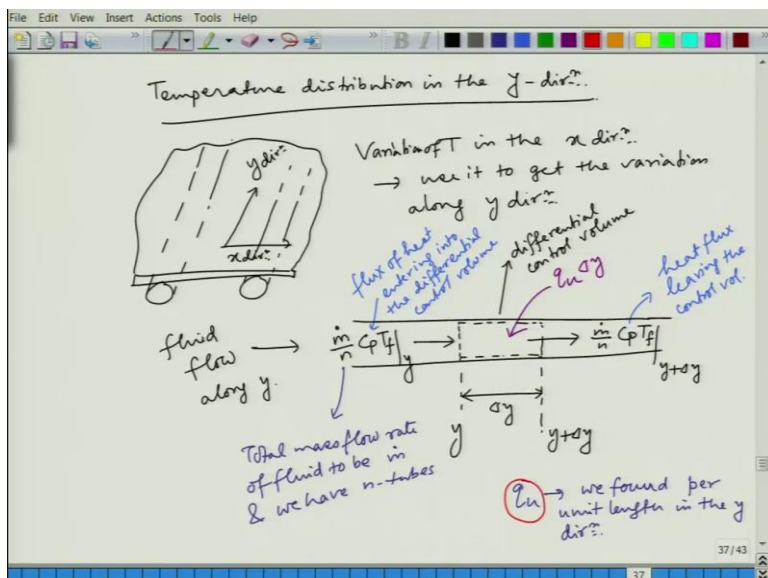 File Edit View Insert Actions Tools Help
B I
Temperature distribution in the y-dirⁿ.
y dirⁿ
x dirⁿ
Variation of T in the x dirⁿ
→ use it to get the variation
along y dirⁿ
flux of heat
entering into
the differential
control volume
differential
control volume
qu Δy
heat flux
leaving the
control vol.
fluid
flow
along y.
ṁ/n CpTf|y
ṁ/n CpTf|y+Δy
Δy
y
y+Δy
Total mass flow rate
of fluid to be ṁ
& we have n-tubes
qu → we found per
unit length in the y
dirⁿ.
37/43
37